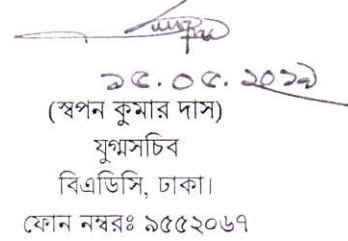 ১৫.০৫.২০১৯
(স্বপন কুমার দাস)
যুগ্মসচিব
বিএডিসি, ঢাকা।
ফোন নম্বরঃ ৯৫৫২০৬৭